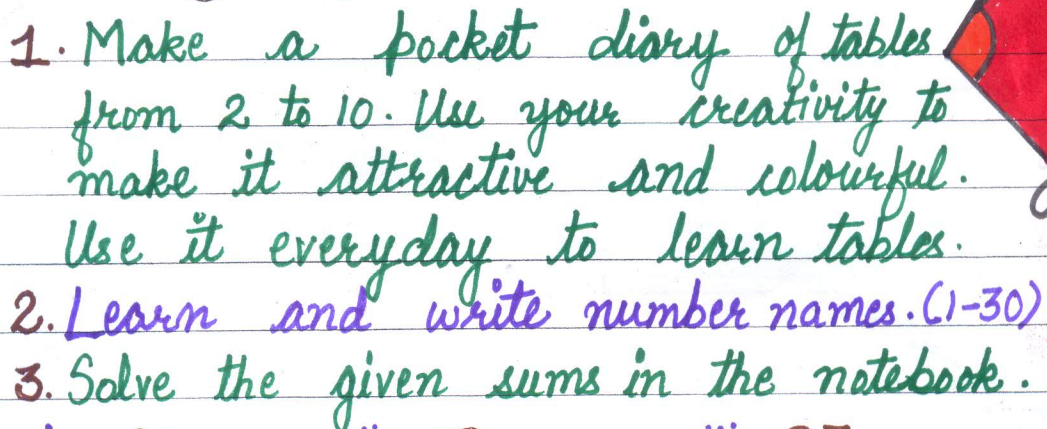 1. Make a pocket diary of tables
from 2 to 10. Use your creativity to
make it attractive and colourful.
Use it everyday to learn tables.
2. Learn and write number names. (1-30)
3. Solve the given sums in the notebook.